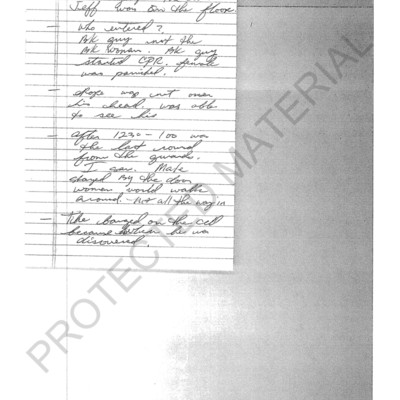 Jeff was on the floor
– who entered?
Ask guy not the
Ask woman. Ask guy
started CPR, female
was panicked.
– was not over
his head. was able
to see his
– after 1230 – 100 was
the last round
from the guards.
I saw. Male
stayed by the door
women would walk
around. – Not all the way in
– Time changed on the cell
because when he was
discovered.
PROTECTED MATERIAL